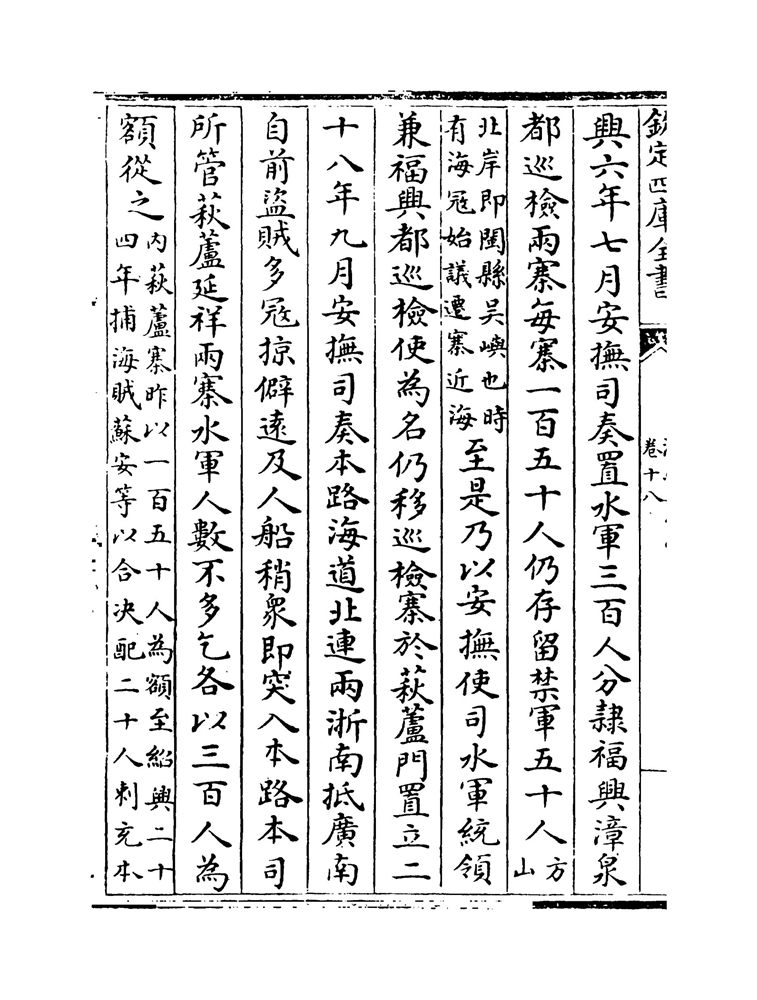 欽定四庫全書
卷十八
興六年七月安撫司奏置水軍三百人分𨽻福興漳泉
都巡檢兩寨每寨一百五十人仍存留禁軍五十人方山
北岸即閩縣吴嶼也時有海冦始議遷寨近海至是乃以安撫使司水軍統領
兼福興都巡檢使為名仍移巡檢寨於萩蘆門置立二
十八年九月安撫司奏本路海道北連兩浙南抵廣南
自前盜賊多冦掠僻逺及人船稍衆即突入本路本司
所管萩蘆延祥兩寨水軍人數不多乞各以三百人為
額從之内萩蘆寨昨以一百五十人為額至紹興二十四年捕海賊蘇安等以合决配二十人刺充本